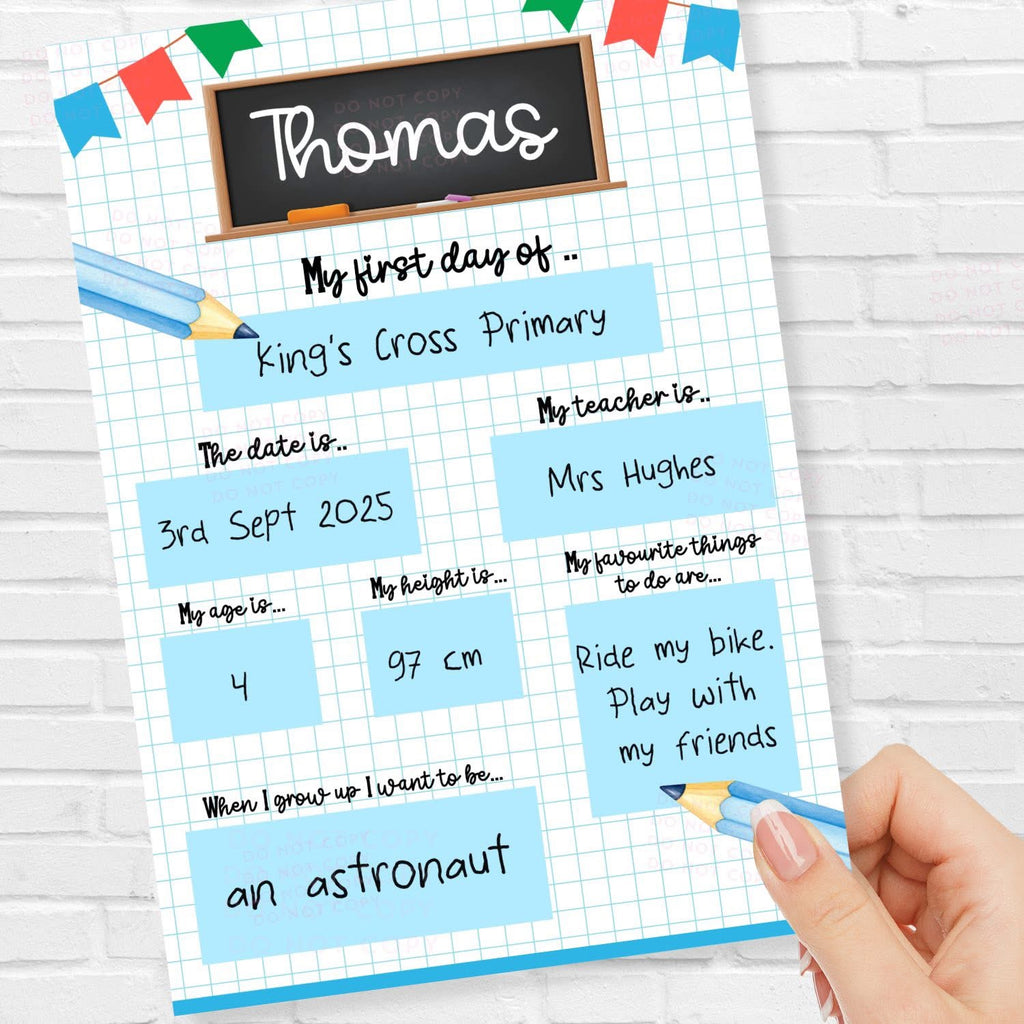 Thomas
My first day of ..
King's Cross Primary
The date is..
3rd Sept 2025
My teacher is..
Mrs Hughes
My age is...
4
My height is...
97 cm
My favourite things
to do are...
Ride my bike.
Play with
my friends
When I grow up I want to be...
an astronaut
DO NOT COPY